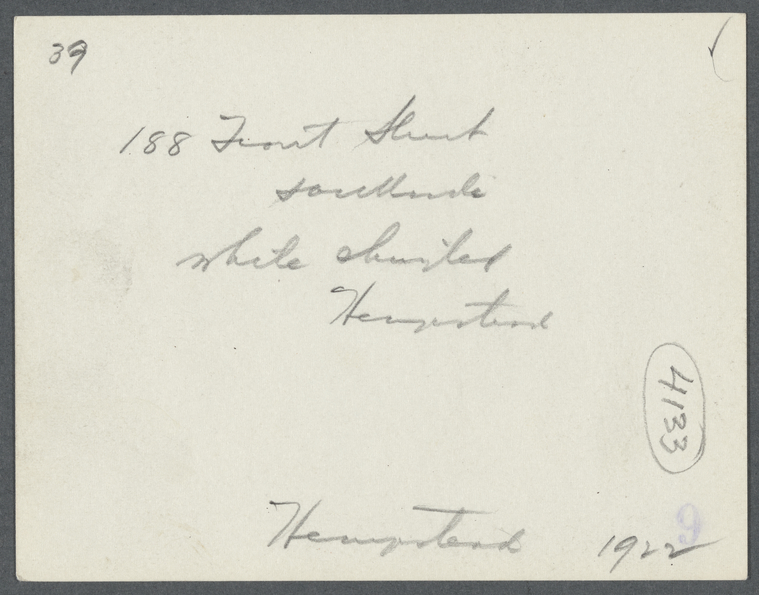 39
188 Front Street
South side
white shingled
Hempstead
4133
Hempstead 1922
9